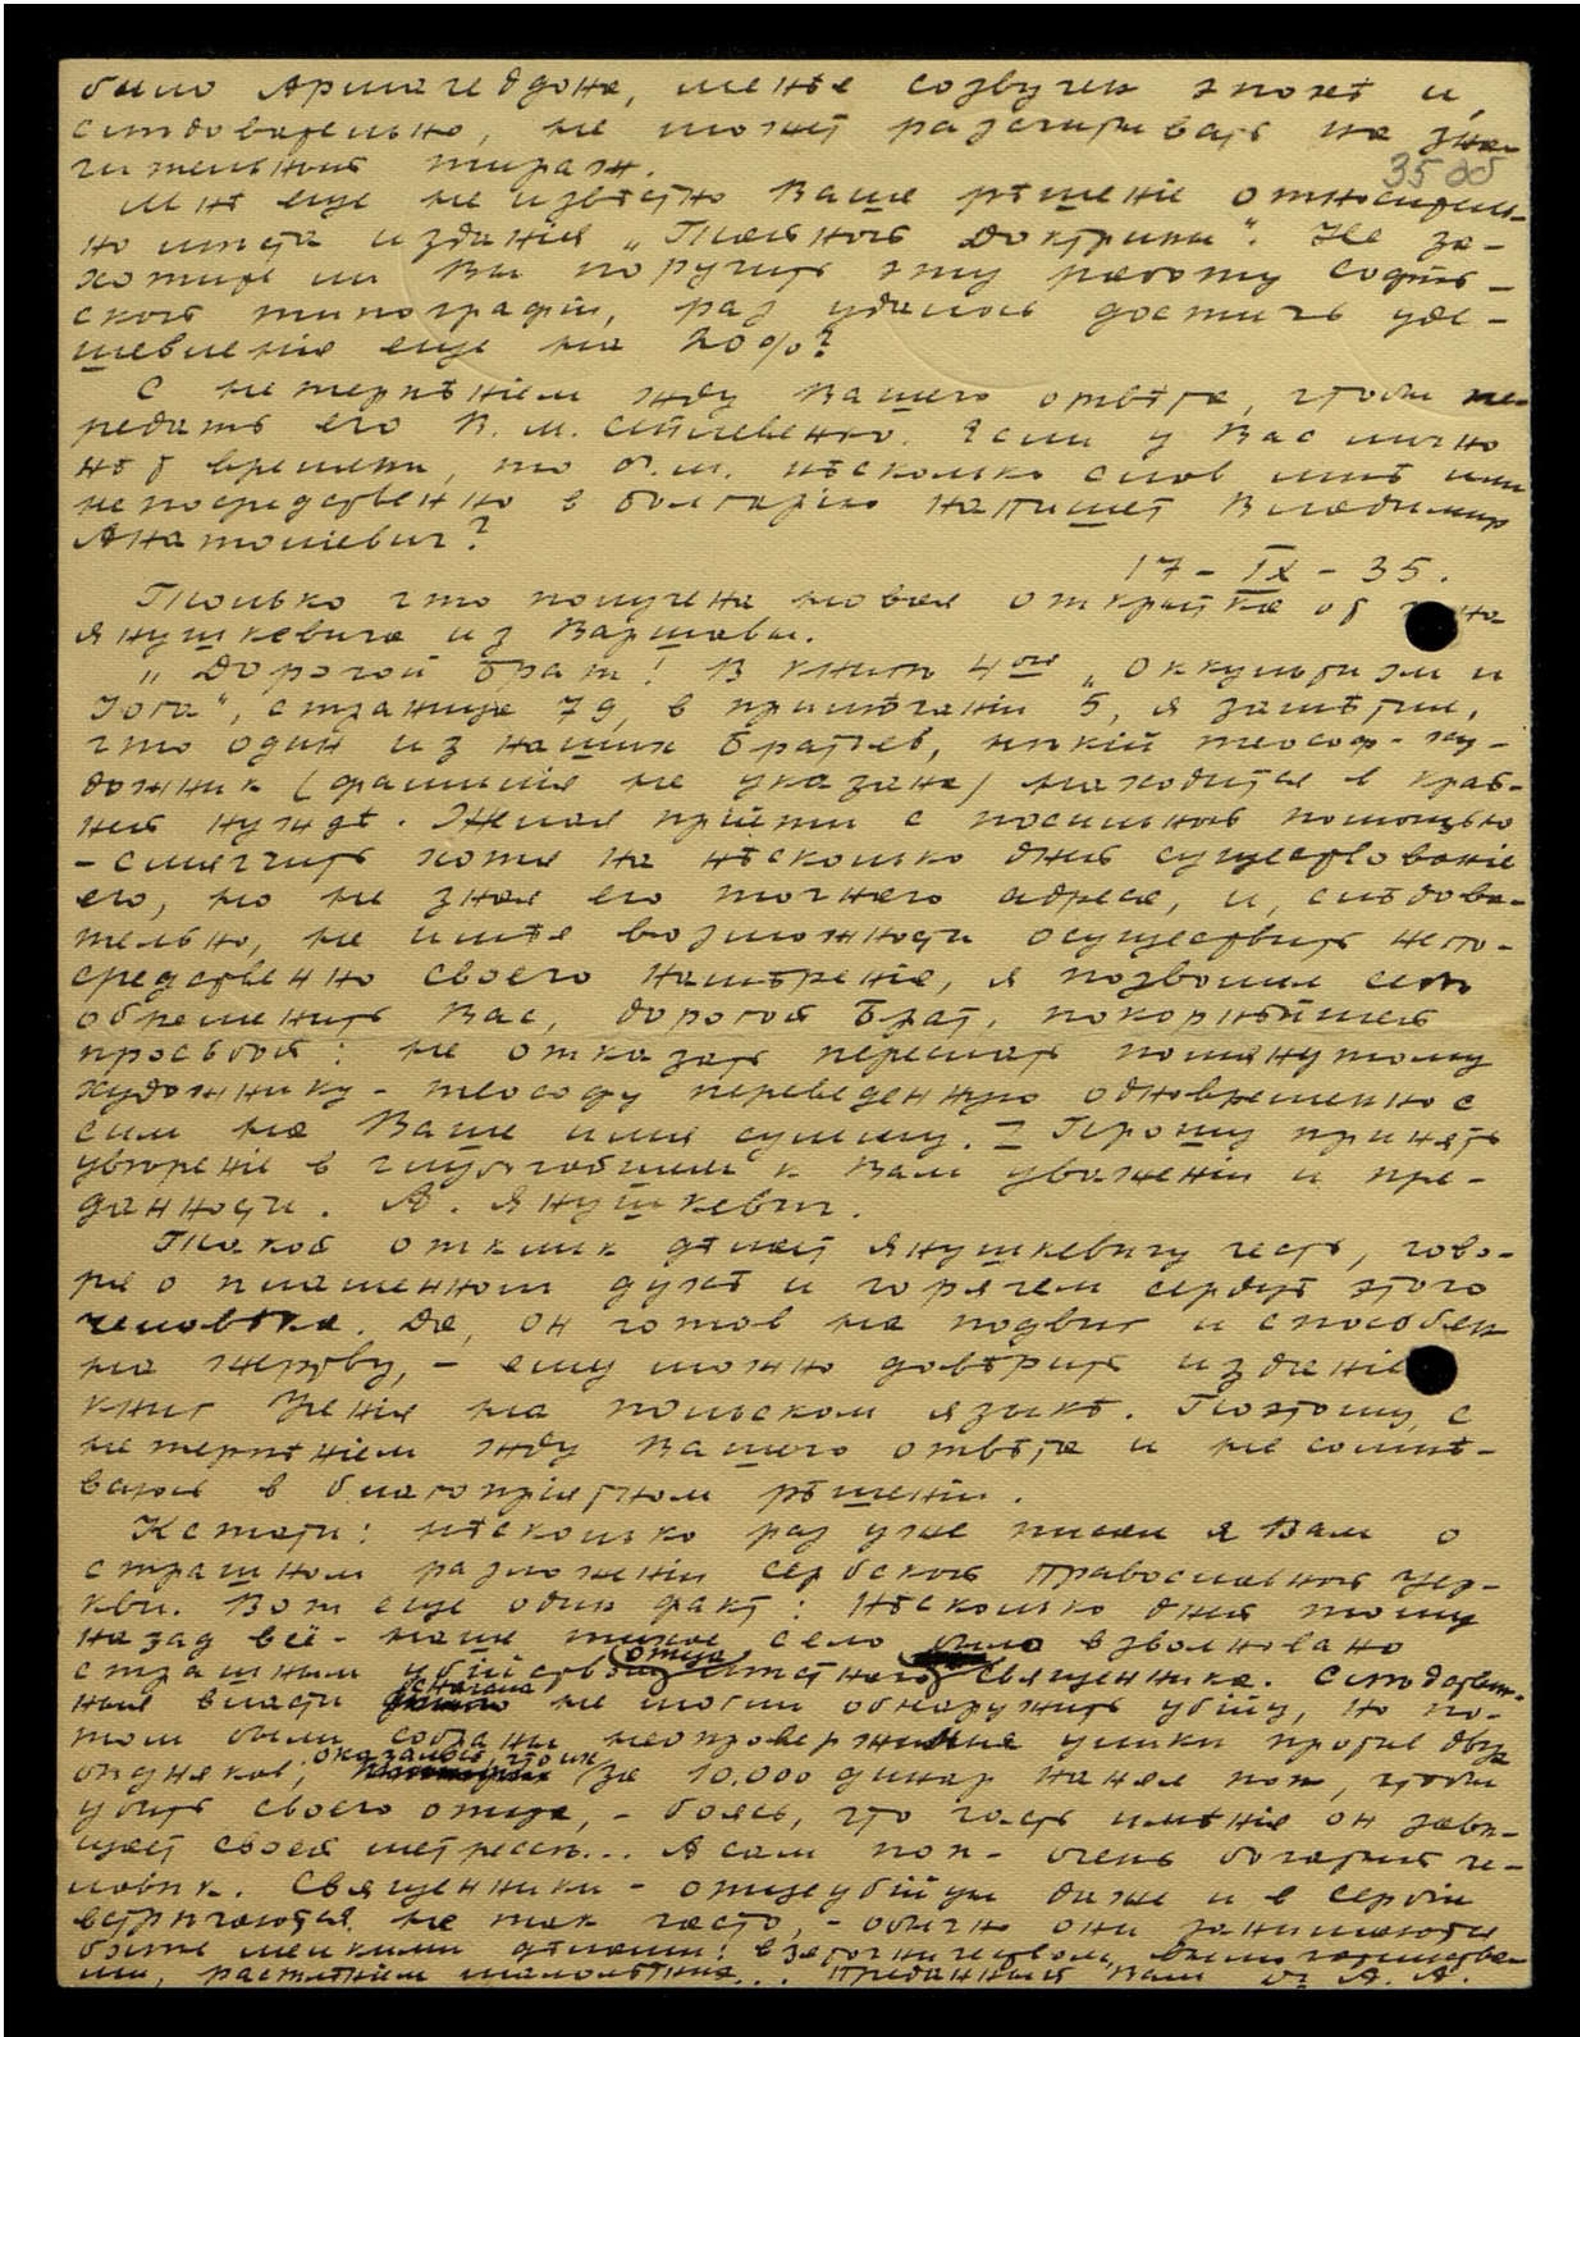 было Армагеддона, менѣе созвучен эпохѣ и,
слѣдовательно, не может разсчитывать на зна-
чительный тираж.
35 об
Мнѣ еще не извѣстно Ваше рѣшеніе относитель-
но мѣста изданія „Тайной Доктрины“. Не за-
хотите ли Вы поручить эту работу
ской типографіи, раз удалось достичь уде-
шевленія еще на 20%?
С нетерпѣніем жду Вашего отвѣта, чтобы пе-
редать его В. М. Если у Вас лично
нѣт времени, то б.м. нѣсколько слов мнѣ или
непосредственно в Болгарію напишет Владимир
Анатольевич?
17 - IX - 35.
Только что получена новая открытка от
Янушкевича из Варшавы.
„Дорогой Брат! В книгѣ 4ой „Оккультизм и
Іога“, странице 79, в примѣчаніи 5, я замѣтил,
что один из наших Братьев, нѣкій теософ-ху-
дожник (фамилія не указана) находится в край-
ней нуждѣ. Желая прійти с посильной помощью
- смягчить хотя на нѣсколько дней существованіе
его, но не зная его точнаго адреса, и, слѣдова-
тельно, не имѣя возможности осуществить непо-
средственно своего намѣренія, я позволил себѣ
обременить Вас, дорогой Брат, покорнѣйшей
просьбой: не отказать переслать помянутому
художнику - теософу переведенную одновременно с
сим на Ваше имя сумму. - Прошу принять
увѣреніе в глубочайшем к Вам уваженіи и пре-
данности. А. Янушкевич.
Такой отклик дѣлает Янушкевичу честь, гово-
ря о пламенном духѣ и горячем сердцѣ этого
человѣка. Да, он готов на подвиг и способен
на жертву, - ему можно довѣрить изданіе
книг Ученія на польском языкѣ. Поэтому, с
нетерпѣніем жду Вашего отвѣта и не сомнѣ-
ваюсь в благопріятном рѣшеніи.
Кстати: нѣсколько раз уже писал я Вам о
страшном разложеніи сербской православной цер-
кви. Вот еще один факт: Нѣсколько дней тому
назад всё наше тихое село было взволновано
страшным убійством отца мѣстнаго священника. Слѣдствен-
ныя власти сначала не могли обнаружить убійц, но по-
том были собраны неопровержимыя улики против двух
бѣдняков; оказалось, что их за 10.000 динар нанял поп, чтобы
убить своего отца, - боясь, что часть имѣнія он завѣ-
щает своей метрессѣ... А сам поп - очень богатый че-
ловѣк. Священники - отцеубійцы даже и в Сербіи
встрѣчаются не так часто, - обычно они занимаются
болѣе мелкими дѣлами: взяточничеством,
растлѣніем малолѣтних... Преданный Вам Dr А. А.